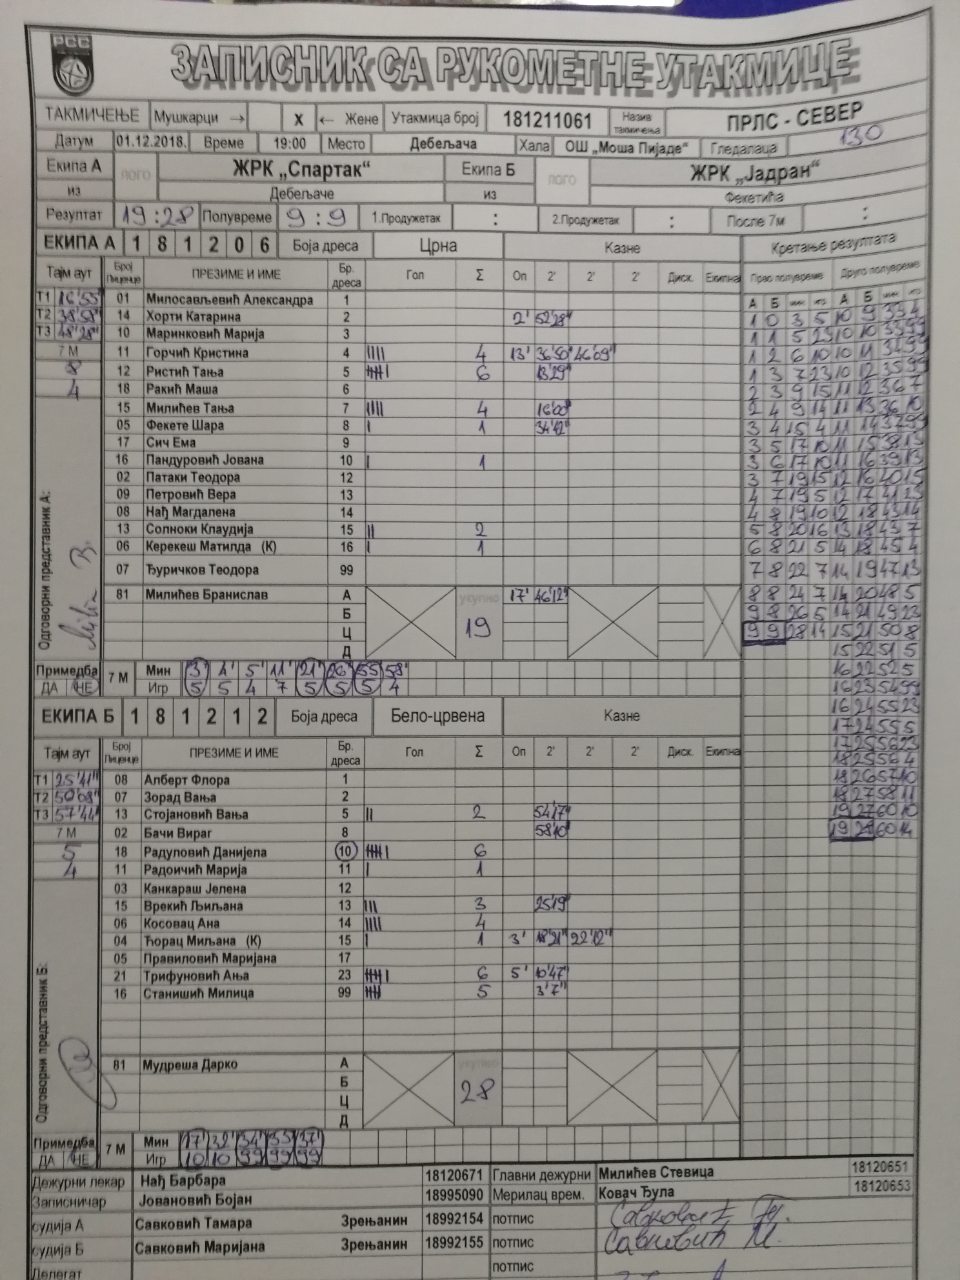 РСС
ЗАПИСНИК СА РУКОМЕТНЕ УТАКМИЦЕ
ТАКМИЧЕЊЕ Мушкарци → X ← Жене Утакмица број 181211061 Назив такмичења ПРЛС - СЕВЕР
Датум 01.12.2018. Време 19:00 Место Дебељача Хала ОШ „Моша Пијаде“ Гледалаца 130
Екипа А лого ЖРК „Спартак“ Екипа Б лого ЖРК „Јадран“
из Дебељаче из Фекетића
Резултат 19:28 Полувреме 9:9 1.Продужетак : 2.Продужетак : После 7м :
ЕКИПА А 1 8 1 2 0 6 Боја дреса Црна Казне Кретање резултата
Тајм аут Број Лиценце ПРЕЗИМЕ И ИМЕ Бр. дреса Гол Σ Оп 2' 2' 2' Диск. Екипна Прво полувреме Друго полувреме
А Б мин игр А Б мин игр
Т1 16'55" 01 Милосављевић Александра 1
Т2 38'58" 14 Хорти Катарина 2 2' 52'28"
Т3 48'28" 10 Маринковић Марија 3
7 М 11 Горчић Кристина 4 |||| 4 13' 36'50" 46'09"
8 12 Ристић Тања 5 6 13'29"
4 18 Ракић Маша 6
15 Милићев Тања 7 |||| 4 16'00"
05 Фекете Шара 8 | 1 34'42"
17 Сич Ема 9
16 Пандуровић Јована 10 | 1
02 Патаки Теодора 12
09 Петровић Вера 13
08 Нађ Магдалена 14
13 Солноки Клаудија 15 || 2
06 Керекеш Матилда (К) 16 | 1
07 Ђуричков Теодора 99
81 Милићев Бранислав А укупно 17' 46'12"
Б 19
Ц
Д
Одговорни представник А:
1 0 3 5 10 9 33 4
1 1 5 23 10 10 33 99
1 2 6 10 10 11 34 99
1 3 7 23 10 12 35 99
2 3 9 15 11 12 36 7
2 4 9 14 11 13 36 10
3 4 15 4 11 14 37 99
3 5 17 10 11 15 38 13
3 6 17 10 11 16 39 13
3 7 19 15 12 16 40 15
4 7 19 5 12 17 41 23
4 8 19 10 12 18 43 14
5 8 20 16 13 18 43 7
6 8 21 5 14 18 45 4
7 8 22 7 14 19 47 13
8 8 24 7 14 20 48 5
9 8 26 5 14 21 49 23
9 9 28 14 15 21 50 8
15 22 51 5
16 22 52 5
16 23 54 99
16 24 55 23
17 24 55 5
17 25 56 23
18 25 56 4
18 26 57 10
18 27 58 11
19 27 60 10
19 28 60 14
Примедба 7 М Мин 3' 4' 5' 11' 21' 26' 55' 58'
ДА НЕ Игр 5 5 4 7 5 5 5 4
ЕКИПА Б 1 8 1 2 1 2 Боја дреса Бело-црвена Казне
Тајм аут Број Лиценце ПРЕЗИМЕ И ИМЕ Бр. дреса Гол Σ Оп 2' 2' 2' Диск. Екипна
Т1 25'41" 08 Алберт Флора 1
Т2 50'08" 07 Зорад Вања 2
Т3 57'44" 13 Стојановић Вања 5 || 2 54'17"
7 М 02 Бачи Вираг 8 58'10"
5 18 Радуловић Данијела 10 6
4 11 Радоичић Марија 11 | 1
03 Канкараш Јелена 12
15 Врекић Љиљана 13 ||| 3 25'19"
06 Косовац Ана 14 |||| 4
04 Ћорац Миљана (К) 15 | 1 3' 18'21" 22'12"
05 Правиловић Маријана 17
21 Трифуновић Ања 23 6 5' 10'47"
16 Станишић Милица 99 5 3'7"
81 Мудреша Дарко А укупно
Б 28
Ц
Д
Одговорни представник Б:
Примедба 7 М Мин 17' 32' 34' 35' 37'
ДА НЕ Игр 10 10 99 99 99
Дежурни лекар Нађ Барбара 18120671 Главни дежурни Милићев Стевица 18120651
Записничар Јовановић Бојан 18995090 Мерилац врем. Ковач Ђула 18120653
судија А Савковић Тамара Зрењанин 18992154 потпис Савковић Т.
судија Б Савковић Маријана Зрењанин 18992155 потпис Савковић М.
Делегат потпис